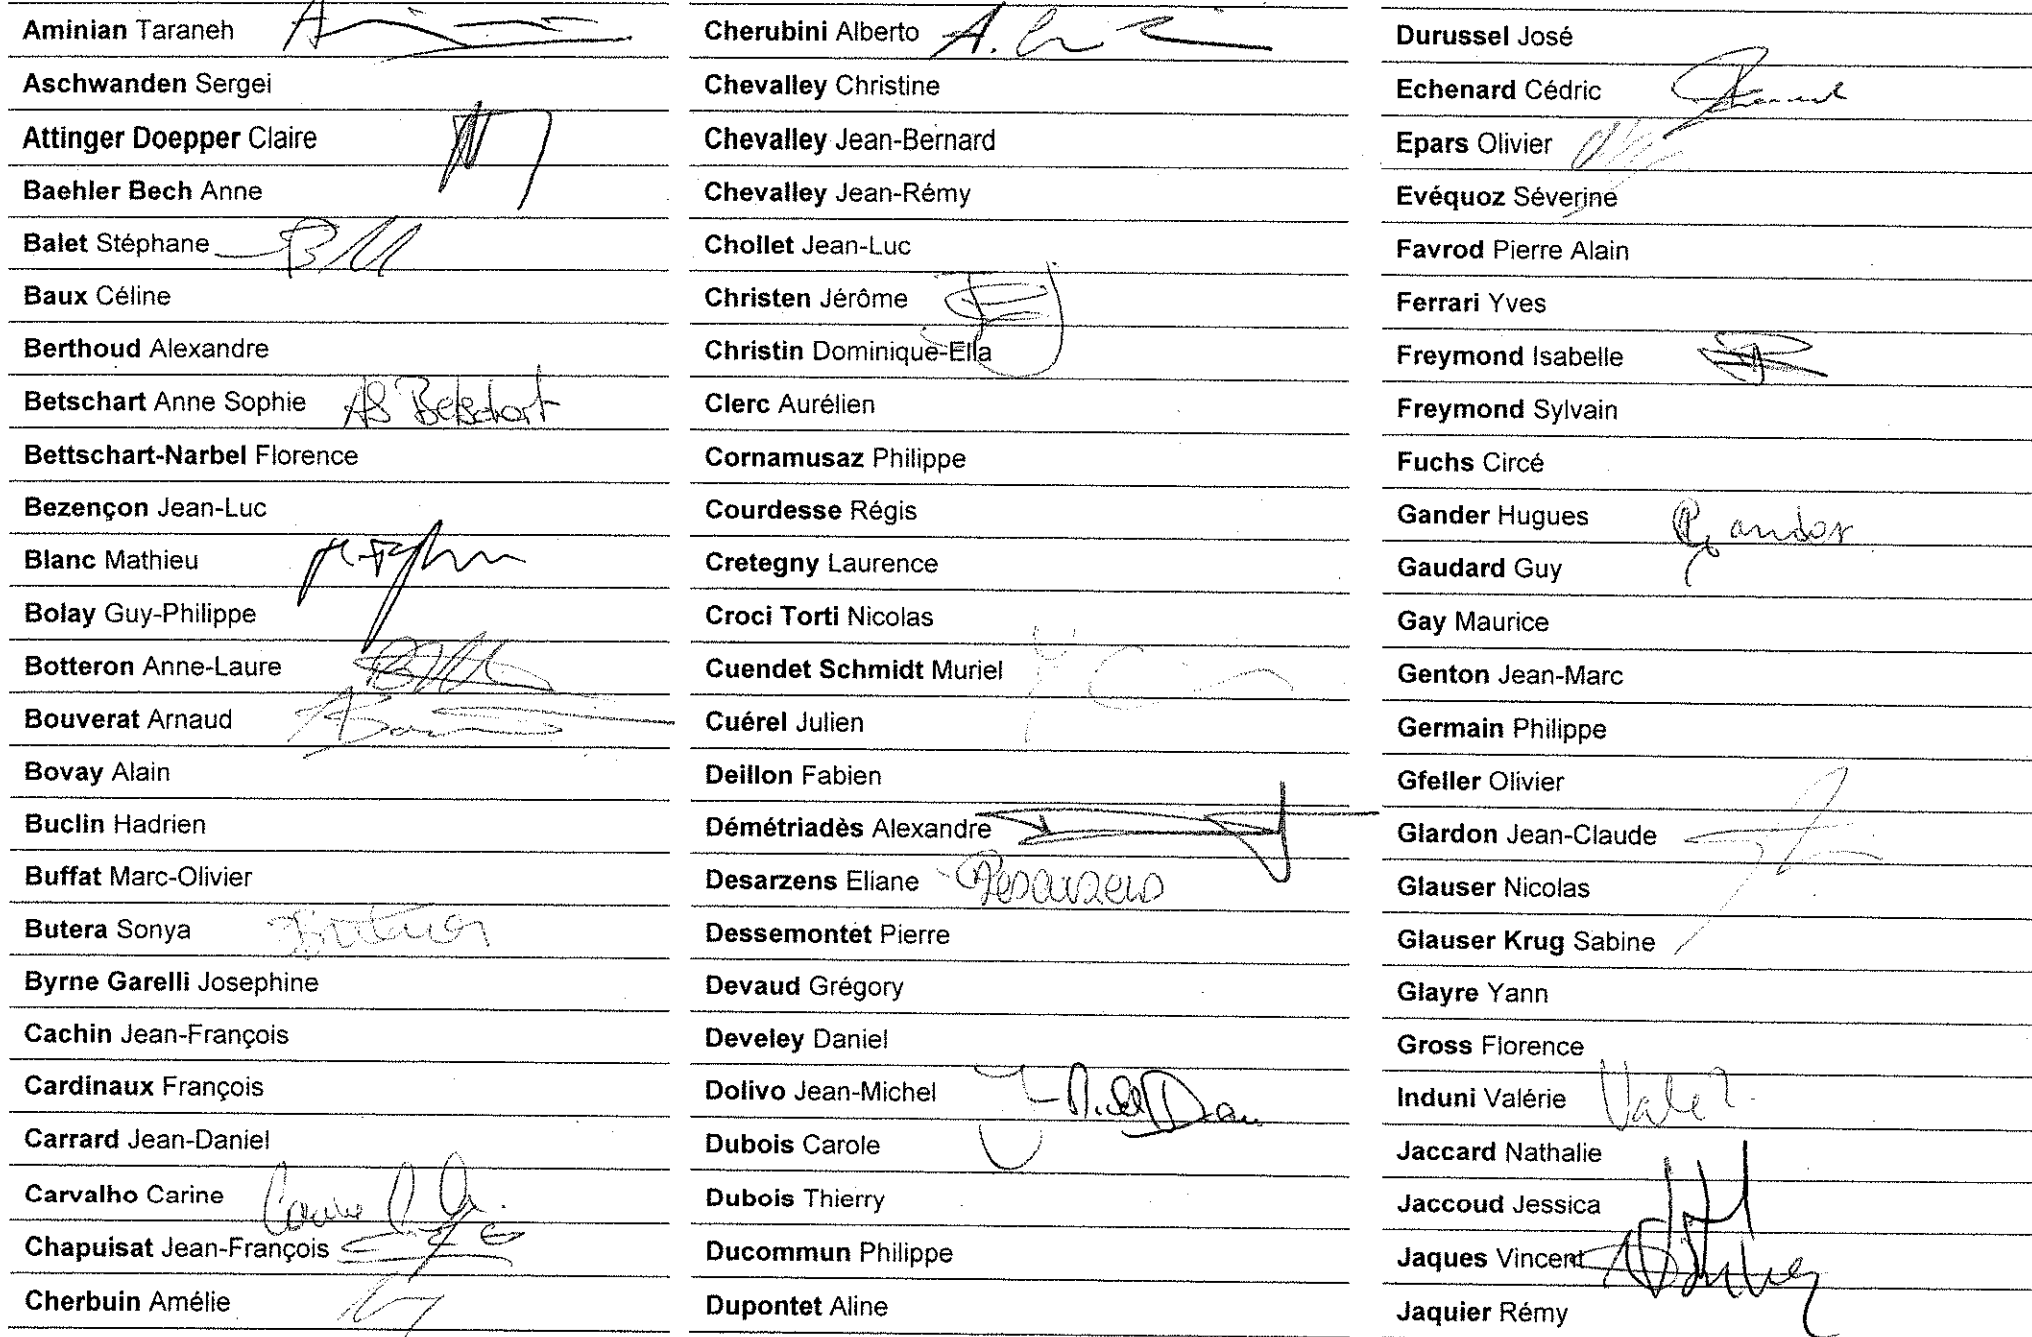 Aminian Taraneh
Aschwanden Sergei
Attinger Doepper Claire
Baehler Bech Anne
Balet Stéphane
Baux Céline
Berthoud Alexandre
Betschart Anne Sophie AS Betschart
Bettschart-Narbel Florence
Bezençon Jean-Luc
Blanc Mathieu
Bolay Guy-Philippe
Botteron Anne-Laure
Bouverat Arnaud
Bovay Alain
Buclin Hadrien
Buffat Marc-Olivier
Butera Sonya Butera
Byrne Garelli Josephine
Cachin Jean-François
Cardinaux François
Carrard Jean-Daniel
Carvalho Carine Carine
Chapuisat Jean-François
Cherbuin Amélie
Cherubini Alberto A.
Chevalley Christine
Chevalley Jean-Bernard
Chevalley Jean-Rémy
Chollet Jean-Luc
Christen Jérôme
Christin Dominique-Ella
Clerc Aurélien
Cornamusaz Philippe
Courdesse Régis
Cretegny Laurence
Croci Torti Nicolas
Cuendet Schmidt Muriel
Cuérel Julien
Deillon Fabien
Démétriadès Alexandre
Desarzens Eliane Desarzens
Dessemontet Pierre
Devaud Grégory
Develey Daniel
Dolivo Jean-Michel
Dubois Carole
Dubois Thierry
Ducommun Philippe
Dupontet Aline
Durussel José
Echenard Cédric
Epars Olivier
Evéquoz Séverine
Favrod Pierre Alain
Ferrari Yves
Freymond Isabelle
Freymond Sylvain
Fuchs Circé
Gander Hugues
Gaudard Guy
Gay Maurice
Genton Jean-Marc
Germain Philippe
Gfeller Olivier
Glardon Jean-Claude
Glauser Nicolas
Glauser Krug Sabine
Glayre Yann
Gross Florence
Induni Valérie
Jaccard Nathalie
Jaccoud Jessica
Jaques Vincent
Jaquier Rémy